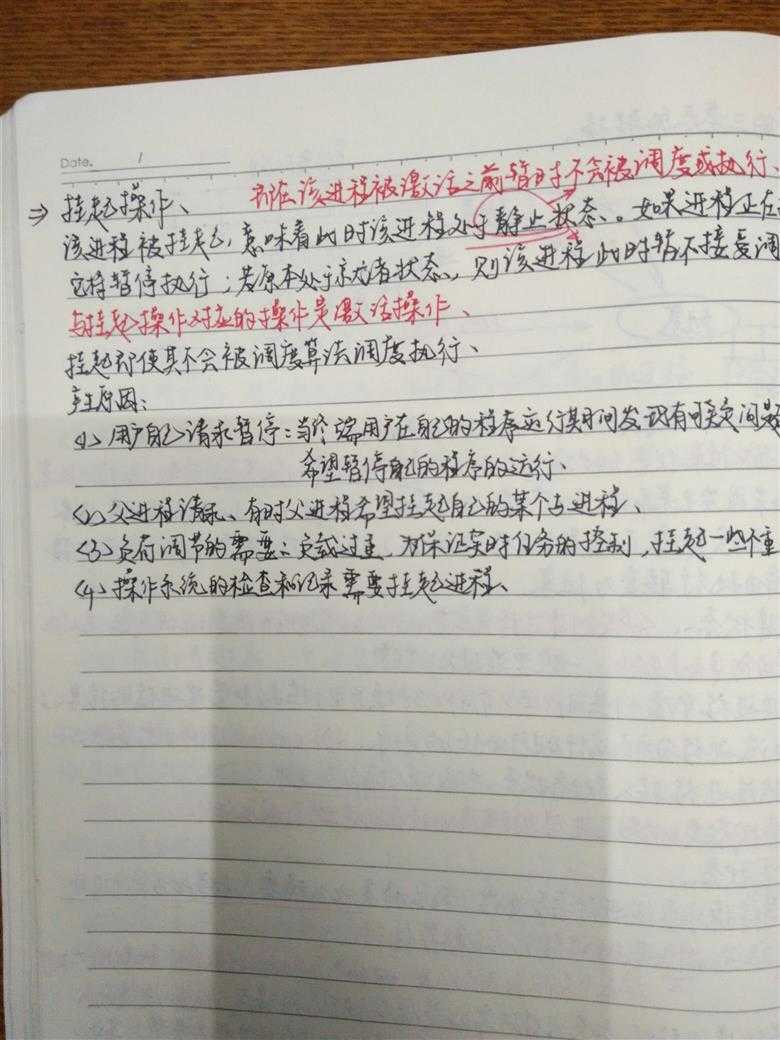 Date. /
即在该进程被激活之前暂时不会被调度或执行、
⇒ 挂起操作、
该进程被挂起,意味着此时该进程处于静止状态、。如果进程正在
它将暂停执行;若原本处于就绪状态、,则该进程此时暂不接受调
与挂起操作对应的操作是激活操作、
挂起即使其不会被调度算法调度执行、
主原因:
(1) 用户自己请求暂停:当终端用户在自己的程序运行期间发现有可疑问题
希望暂停自己的程序的运行、
(2) 父进程请求、有时父进程希望挂起自己的某个子进程、
(3) 负荷调节的需要:负载过重,为保证实时任务的控制,挂起一些不重
(4) 操作系统的检查和记录需要挂起进程、